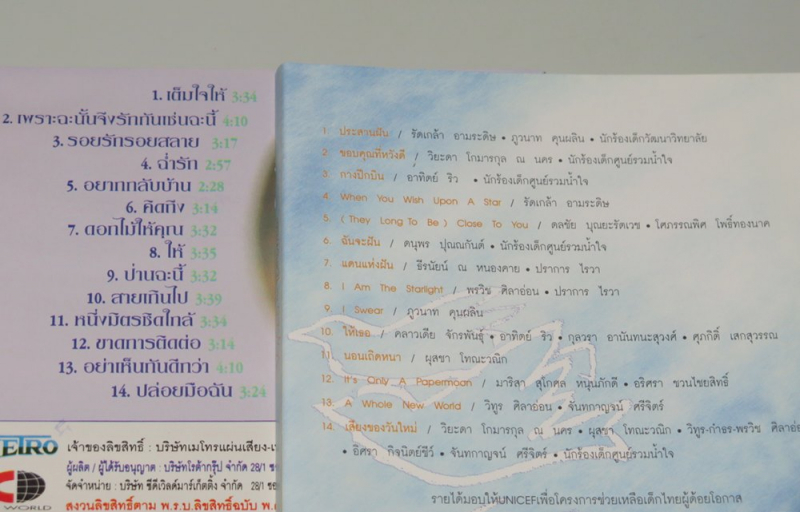 1. เต็มใจให้ 3:34
2. เพราะฉะนั้นจึงรักกันเช่นฉะนี้ 4:10
3. รอยรักรอยสลาย 3:17
4. ฉ่ำรัก 2:57
5. อยากกลับบ้าน 2:28
6. คิดถึง 3:14
7. ดอกไม้ให้คุณ 3:32
8. ให้ 3:35
9. ป่านฉะนี้ 3:32
10. สายเกินไป 3:39
11. หนึ่งมิตรชิดใกล้ 3:34
12. ขาดการติดต่อ 3:14
13. อย่าเห็นกันดีกว่า 4:10
14. ปล่อยมือฉัน 3:24
METRO เจ้าของลิขสิทธิ์ : บริษัทเมโทรแผ่นเสียง-เ
ผู้ผลิต / ผู้ได้รับอนุญาต : บริษัทโรต้ากรุ๊ป จำกัด 28/1
จัดจำหน่าย : บริษัท ซีดีเวิลด์มาร์เก็ตติ้ง จำกัด 28/1
WORLD
สงวนลิขสิทธิ์ตาม พ.ร.บ.ลิขสิทธิ์ฉบับ
1. ประสานฝัน / รัดเกล้า อามระดิษ • ภูวนาท คุนผลิน • นักร้องเด็กวัฒนาวิทยาลัย
2. ขอบคุณที่หวังดี / วิยะดา โกมารกุล ณ นคร • นักร้องเด็กศูนย์รวมน้ำใจ
3. กางปีกบิน / อาทิตย์ ริว • นักร้องเด็กศูนย์รวมน้ำใจ
4. When You Wish Upon A Star / รัดเกล้า อามระดิษ
5. (They Long To Be) Close To You / ดลชัย บุณยะรัตเวช • โศภรรณพิศ โพธิ์ทองนาค
6. ฉันจะฝัน / ดนุพร ปุณณกันต์ • นักร้องเด็กศูนย์รวมน้ำใจ
7. แดนแห่งฝัน / ธีรนัยน์ ณ หนองคาย • ปราการ ไรวา
8. I Am The Starlight / พรวิช ศิลาอ่อน • ปราการ ไรวา
9. I Swear / ภูวนาท คุนผลิน
10. ให้เธอ / คลาวเดีย จักรพันธุ์ • อาทิตย์ ริว • กุลวรา อานันทนะสุวงศ์ • ศุภกิตติ์ เสกสุวรรณ
11. นอนเถิดหนา / ผุสชา โทณะวณิก
12. It's Only A Papermoon / มาริสา สุโกศล หนุนภักดี • อริศรา ชวนไชยสิทธิ์
13. A Whole New World / วิทูร ศิลาอ่อน • จันทกาญจน์ ศรีจิตร์
14. เสียงของวันใหม่ / วิยะดา โกมารกุล ณ นคร • ผุสชา โทณะวณิก • วิทูร-กำธร-พรวิช ศิลาอ่อ
• อิศรา กิจนิตย์ชีว์ • จันทกาญจน์ ศรีจิตร์ • นักร้องเด็กศูนย์รวมน้ำใจ
รายได้มอบให้UNICEFเพื่อโครงการช่วยเหลือเด็กไทยผู้ด้อยโอกาส